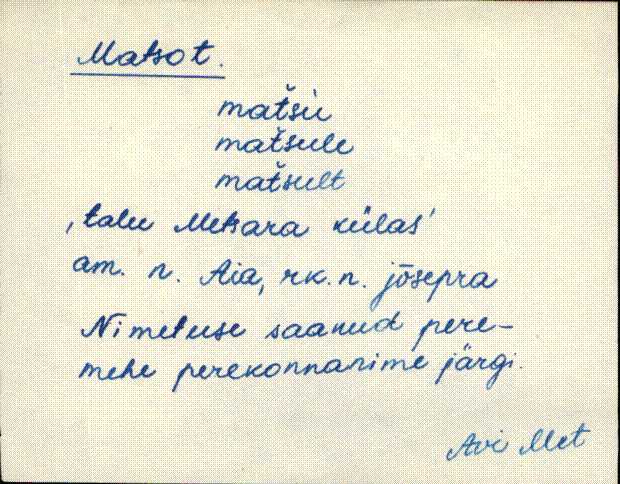 Matsot.
matšìì
matšule
matšult
‚talu Metsara külas’
am. n. Aia, rk. n. jōsepra
Nimetuse saanud pere-
mehe perekonnanime järgi.
Avi Met